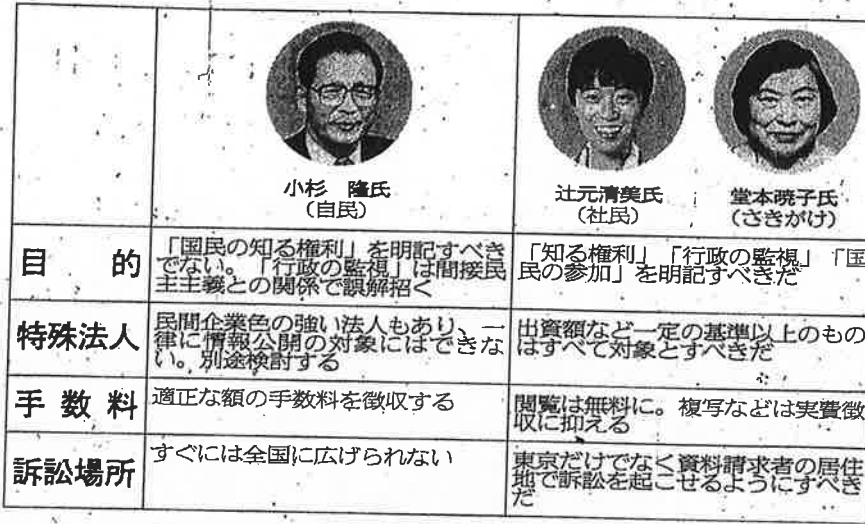 小杉 隆氏
(自民)
辻元清美氏
(社民)
堂本暁子氏
(さきがけ)
目 的
「国民の知る権利」を明記すべき
でない。「行政の監視」は間接民
主主義との関係で誤解招く
「知る権利」「行政の監視」「国
民の参加」を明記すべきだ
特殊法人
民間企業色の強い法人もあり、一
律に情報公開の対象にはできな
い。別途検討する
出資額など一定の基準以上のもの
はすべて対象とすべきだ
手 数 料
適正な額の手数料を徴収する
閲覧は無料に。複写などは実費徴
収に抑える
訴訟場所
すぐには全国に広げられない
東京だけでなく資料請求者の居住
地で訴訟を起こせるようにすべき
だ